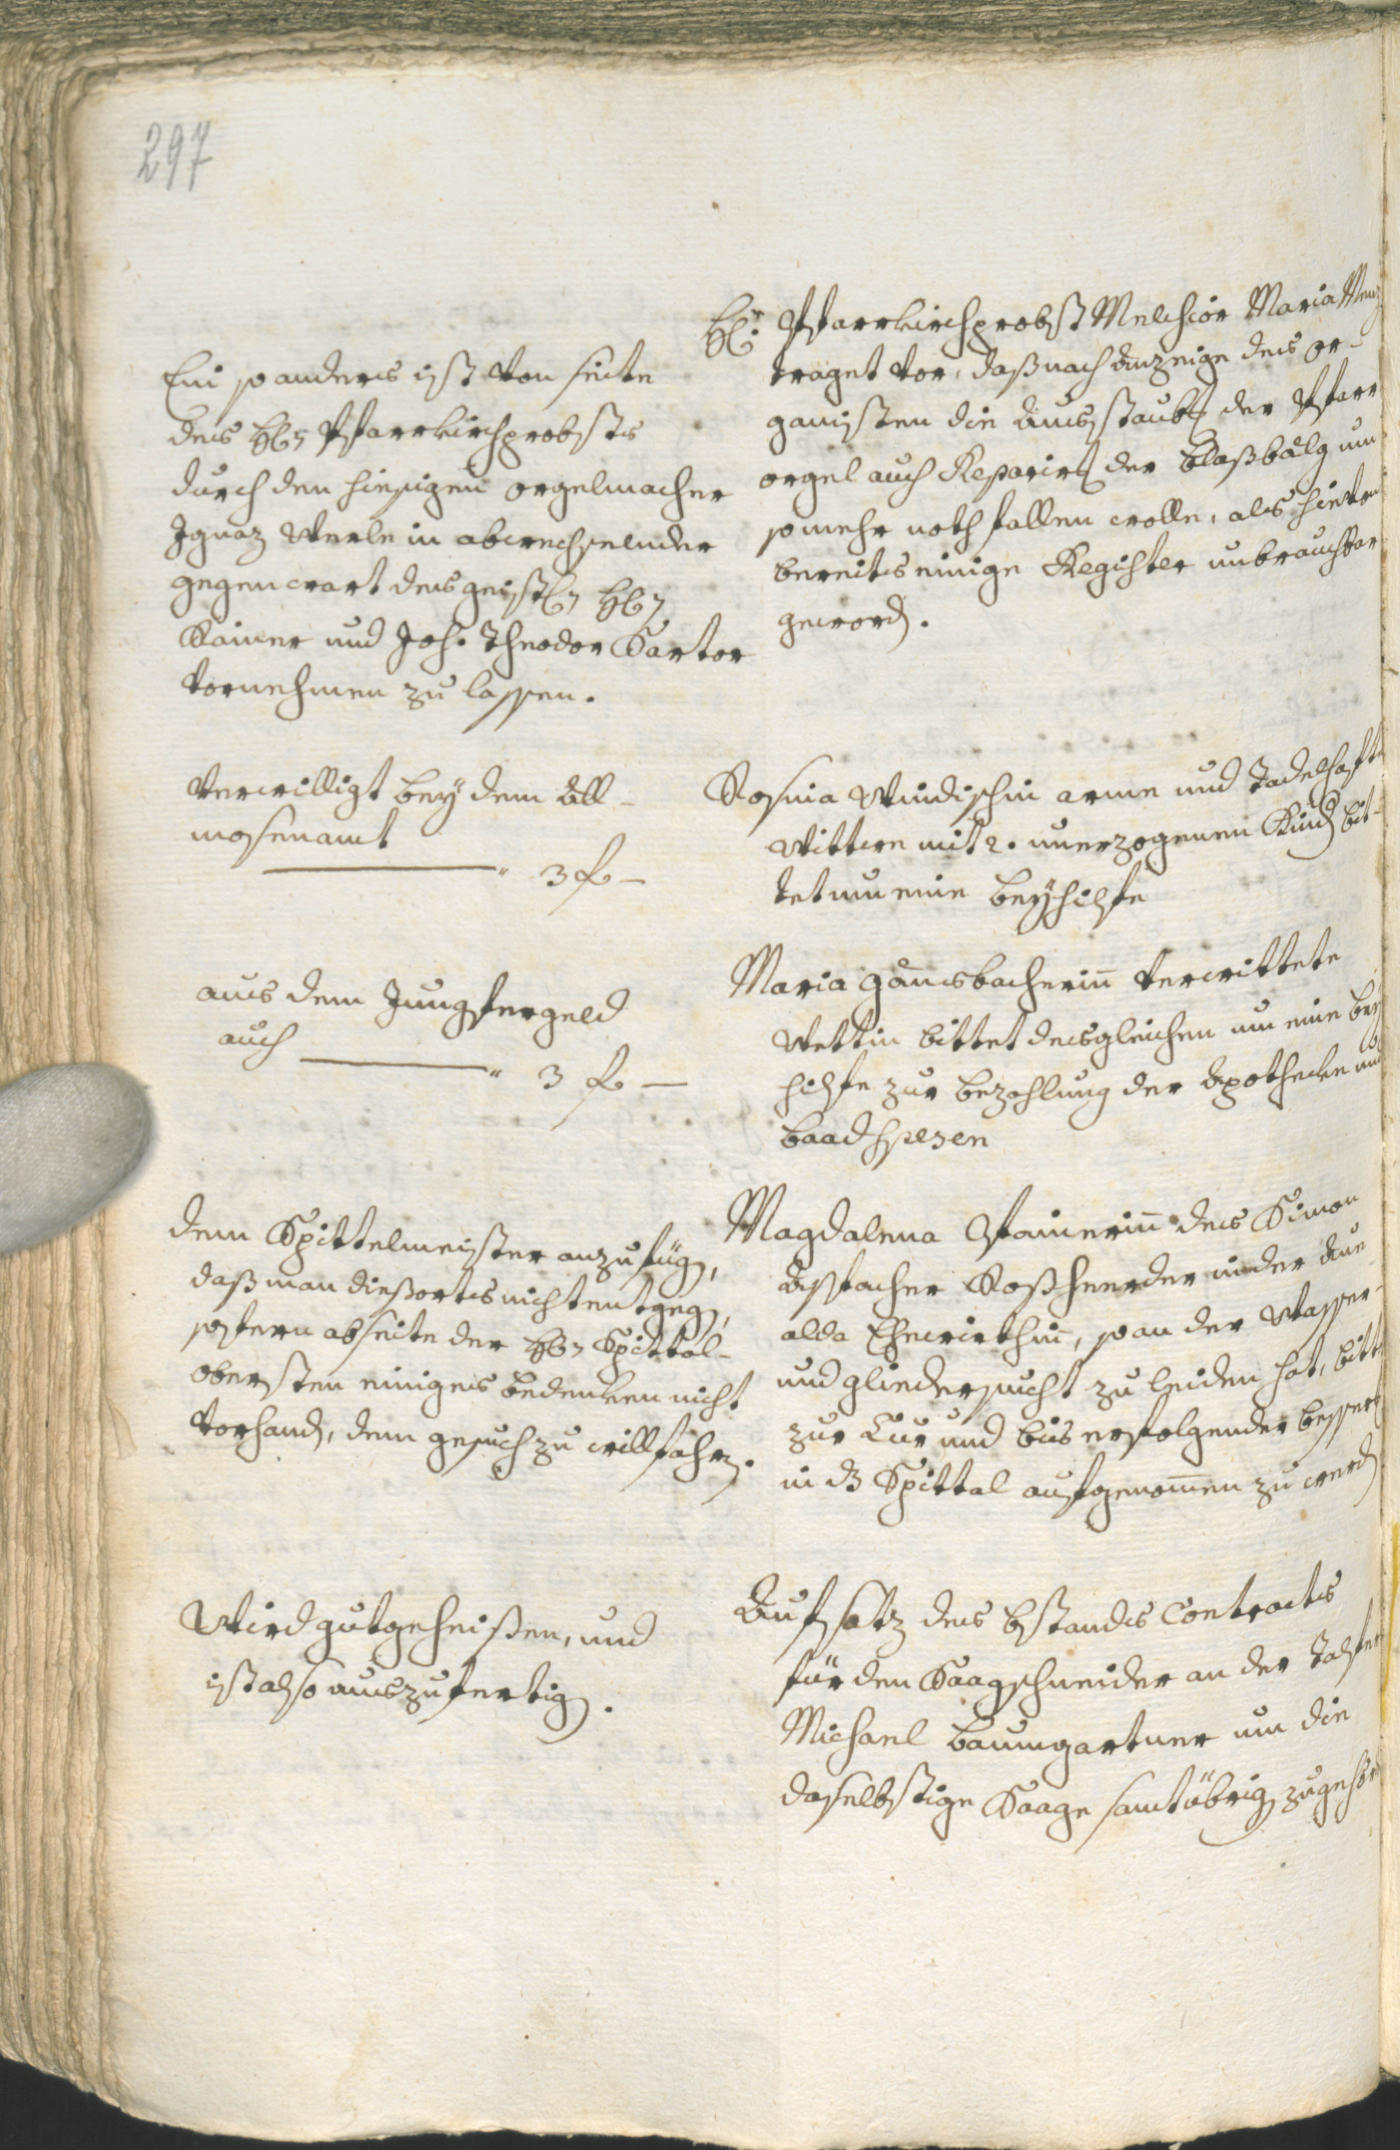 297
H: Pfarrkirchprobst Melchior Maria Menz
traget vor, daß nach Anzeige des Or-
ganisten die Ausstaubg der Pfarr
orgel auch Reparirg der Blaßbälg um
so mehr noth fallen wolle, als hievon
bereits einige Register unbrauchbar
geword.
Ein so anders ist von seite
des H: Pfarrkirchprobsts
durch den hiesigen Orgelmacher
Ignaz Werle in abwechselnder
gegenwart des geistl: H:
Rainer und Joh. Theodor Sartor
vornehmen zu lassen.
Rosina Windischin arme und tadelhafte
Wittwe mit 2. unerzogenen Kind bit-
tet um eine Beyhilfe
Verwilligt bey dem All-
mosenamt
" 3 f –
Maria Gänsbacherin verwittete
Wettin bittet desgleichen um eine bey
hilfe zur bezahlung der Apotheke und
baadspesen
aus dem Jungfergeld
auch
" 3 f –
Magdalena des Simon
Aspacher Roßheerder in der Aue
alda Ehewirthin, so an der Wasser-
und gliedersucht zu leiden hat, bitt
zur Cur und bis erfolgender besserg
in dz Spittal aufgenomen zu werd
dem Spittelmeister anzufüg,
daß man dießorts nicht entgeg,
sofern abseite der H: Spittal-
obersten einiges bedenken nicht
vorhand, dem gesuch zu willfahrn.
Aufsatz des bstands Contracts
für den Saagschneider an der Talfer
Michael Baumgartner um die
daselbstige Saage samt übrig zugehör
Wird gutgeheißen, und
ist also auszufertig.